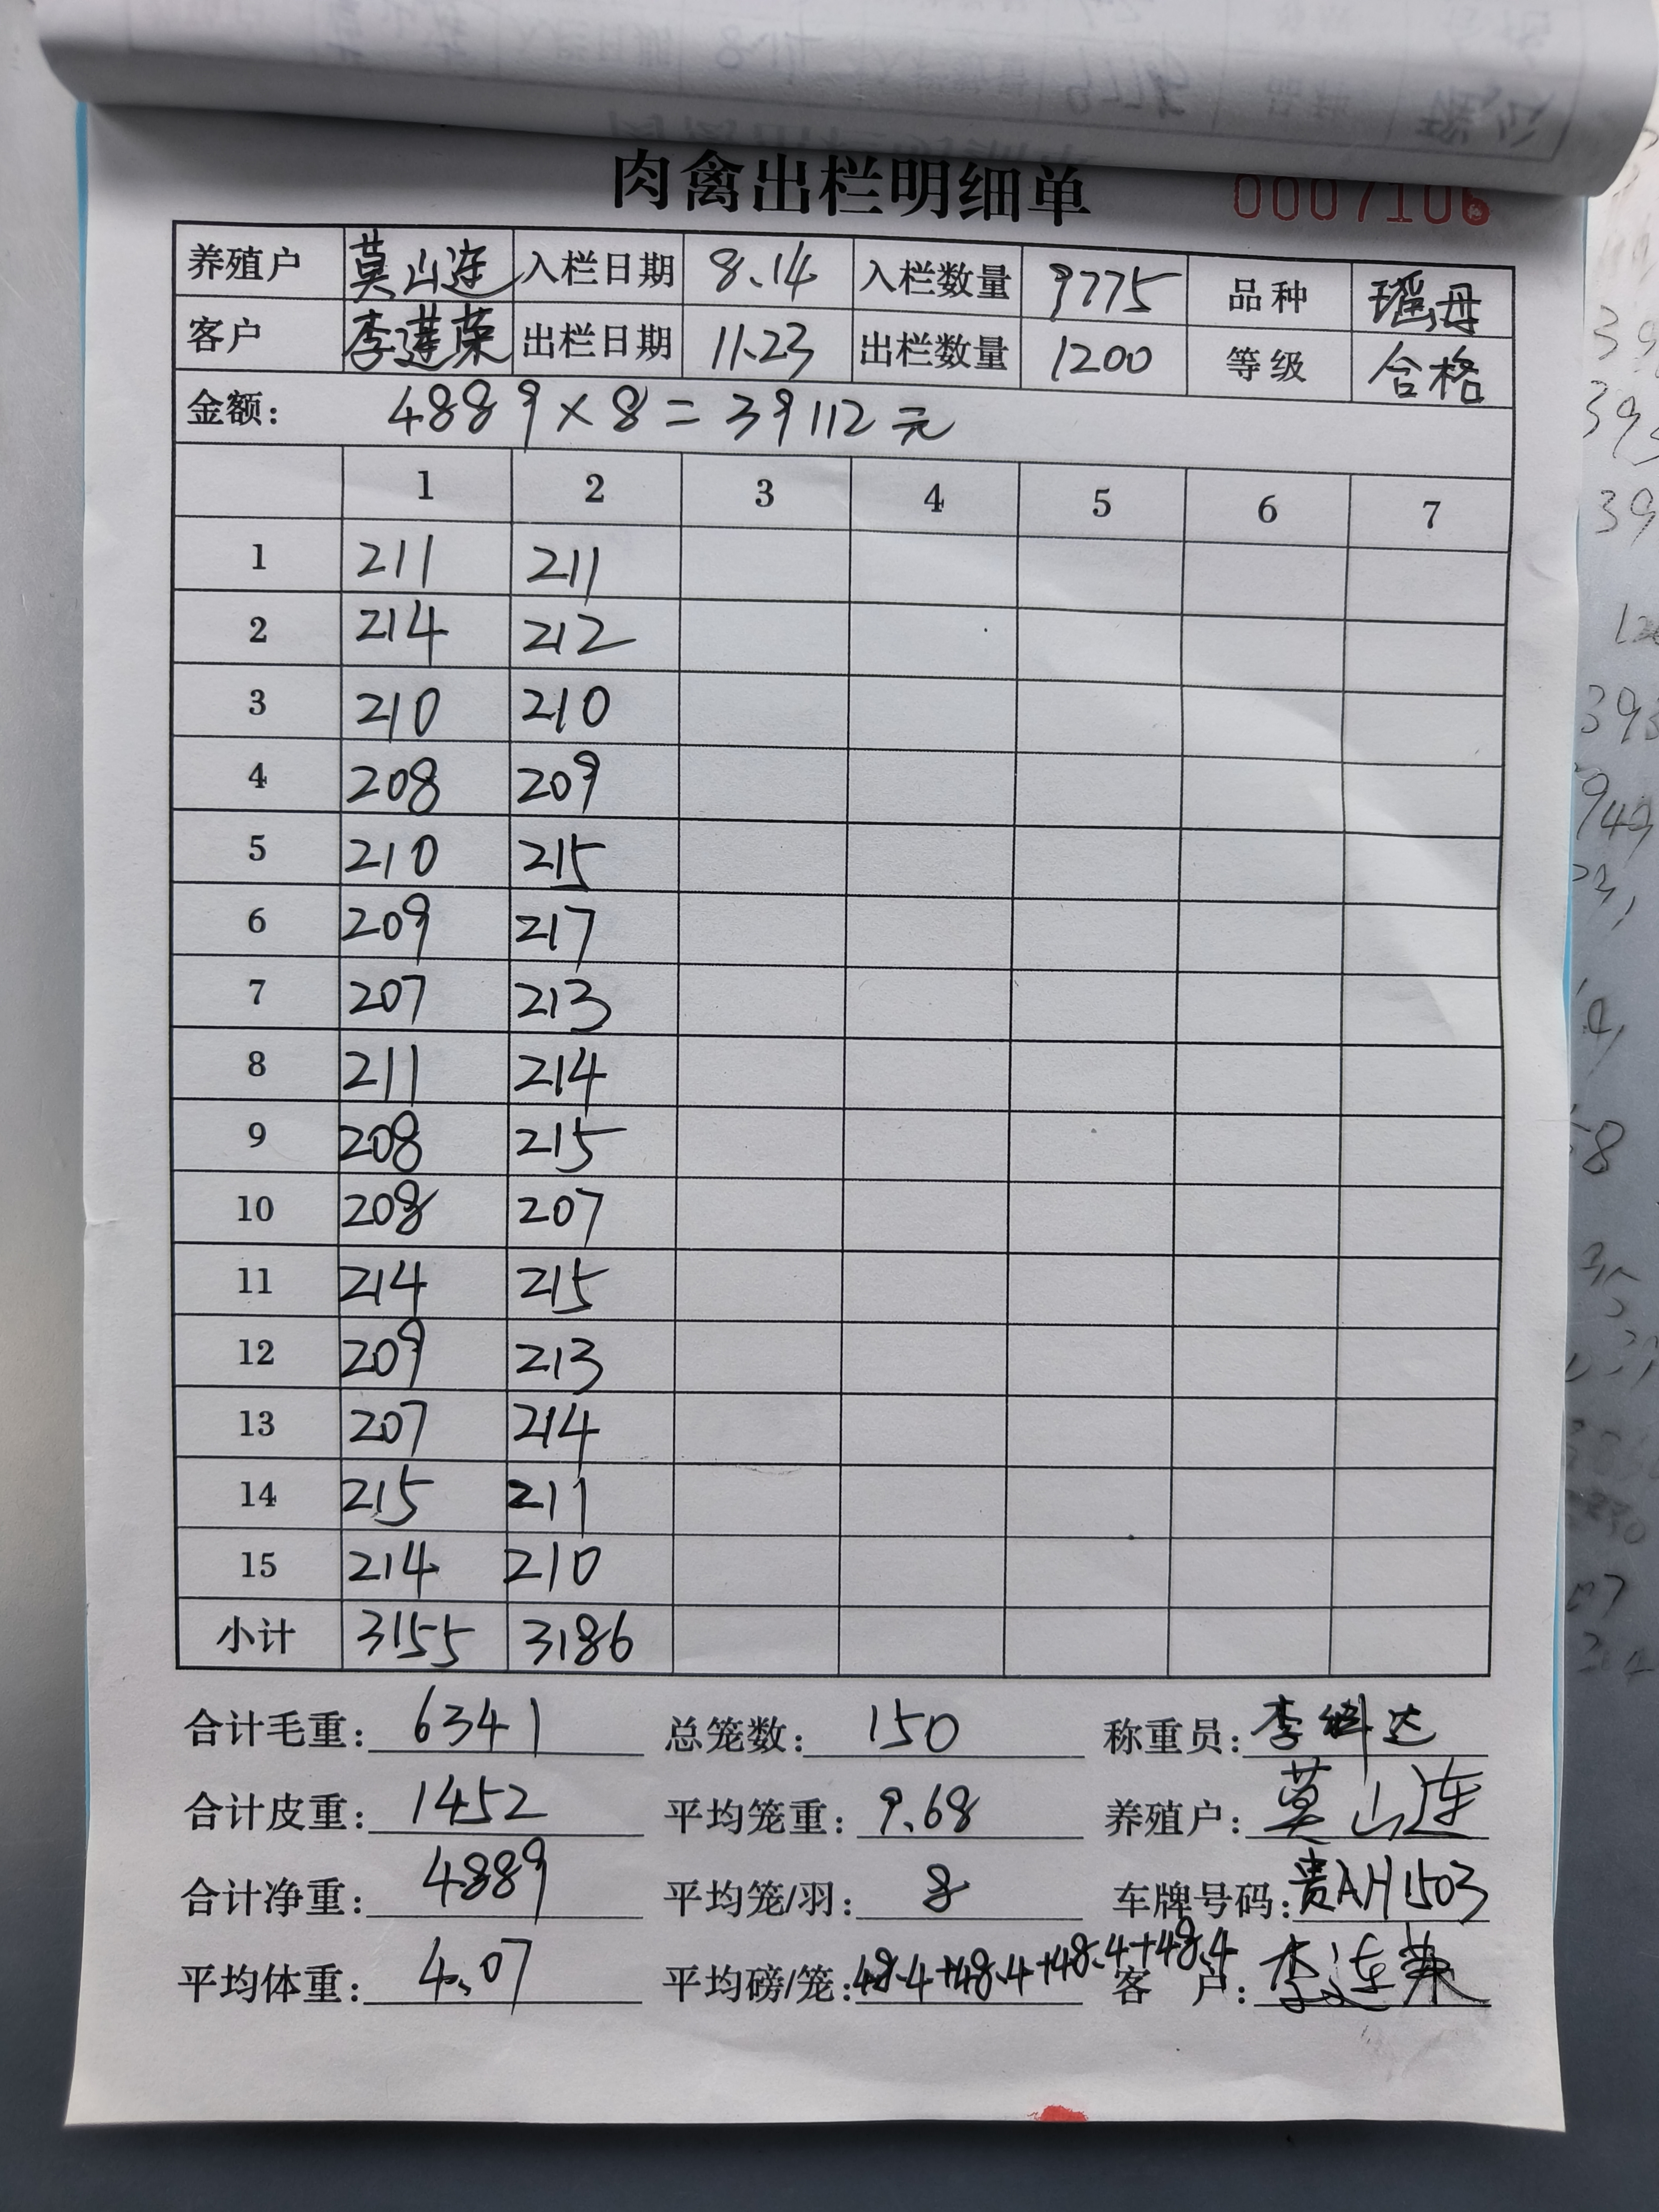 肉禽出栏明细单 0007106
养殖户 莫山连 入栏日期 8.14 入栏数量 9775 品种 瑶母
客户 李莲荣 出栏日期 11.23 出栏数量 1200 等级 合格
金额: 4889×8=39112元
1 2 3 4 5 6 7
1 211 211
2 214 212
3 210 210
4 208 209
5 210 215
6 209 217
7 207 213
8 211 214
9 208 215
10 208 207
11 214 215
12 209 213
13 207 214
14 215 211
15 214 210
小计 3155 3186
合计毛重: 6341 总笼数: 150 称重员: 李 达
合计皮重: 1452 平均笼重: 9.68 养殖户: 莫山连
合计净重: 4889 平均笼/羽: 8 车牌号码: 贵AH1503
平均体重: 4.07 平均磅/笼: 48.4+48.4+48.4+48.4 客 户: 李连荣